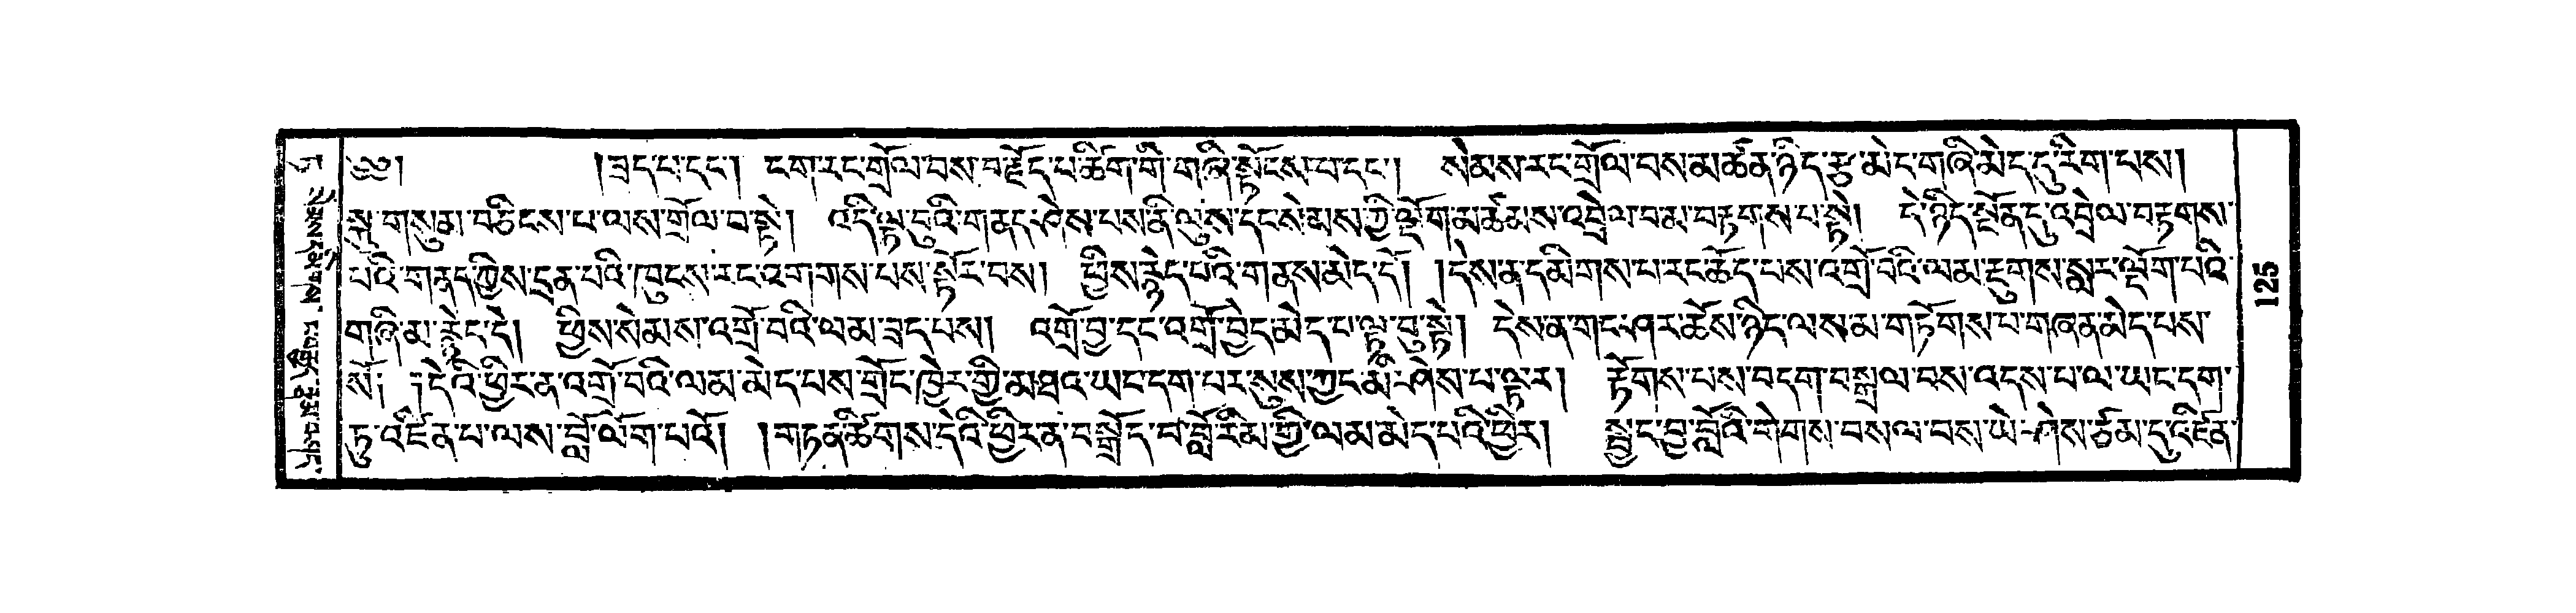 ༄༅། །ཟད་པ་དང་། ངག་རང་གྲོལ་བས་བརྗོད་པ་ཚིག་གི་གཞི་སྟོངས་པ་དང་། སེམས་རང་གྲོལ་བས་མཚན་ཉིད་རྩ་མེད་གཞི་མེད་དུ་རིག་པས།
སྐུ་གསུམ་བཅིངས་པ་ལས་གྲོལ་བ་སྟེ། འདི་ལྟ་བུའི་གནད་ཤེས་པས་ནི་ལུས་དང་སེམས་ཀྱི་ལྡོག་མཚམས་འབྲེལ་བམ་བརྟགས་པ་སྟེ། དེ་ཉིད་སྔོན་དུ་འབྲེལ་བརྟགས་
པའི་གནད་ཀྱིས་དྲན་པའི་ཁུངས་རང་འགགས་པས་སྟོར་བས། ཕྱིས་རྙེད་པའི་གནས་མེད་དོ། །དེས་ན་དམིགས་པ་རང་ཆོད་པས་འགྲོ་བའི་ལམ་རྔུགས་སླར་ལྡོག་པའི་
གཞི་མ་རྙེད་དེ། ཕྱིས་སེམས་འགྲོ་བའི་ལམ་ཟད་པས། འགྲོ་བྱ་དང་འགྲོ་བྱེད་མེད་པ་ལྟ་བུ་སྟེ། དེས་ན་གང་ཤར་ཆོས་ཉིད་ལས་མ་གཏོགས་པ་གཞན་མེད་པས་
སོ། །དེའི་ཕྱིར་ན་འགྲོ་བའི་ལམ་མེད་པས་གྲོང་ཁྱེར་གྱི་མཐའ་ཡང་དག་པར་སུས་ཀྱང་མི་ཤེས་པ་ལྟར། རྟོགས་པས་བདག་བསྒྲལ་བས་འདས་པ་ལ་ཡང་དག་
ཏུ་འཛིན་པ་ལས་བློ་ལོག་པའོ། །གཏན་ཚིགས་དེའི་ཕྱིར་ན་བསྒྲོད་པ་བློ་རིམ་གྱི་ལམ་མེད་པའི་ཕྱིར། སྤྱད་བྱ་བློའི་གེགས་བསལ་བས་ཡེ་ཤེས་ཙམ་དུ་ངེར་ཛིན་